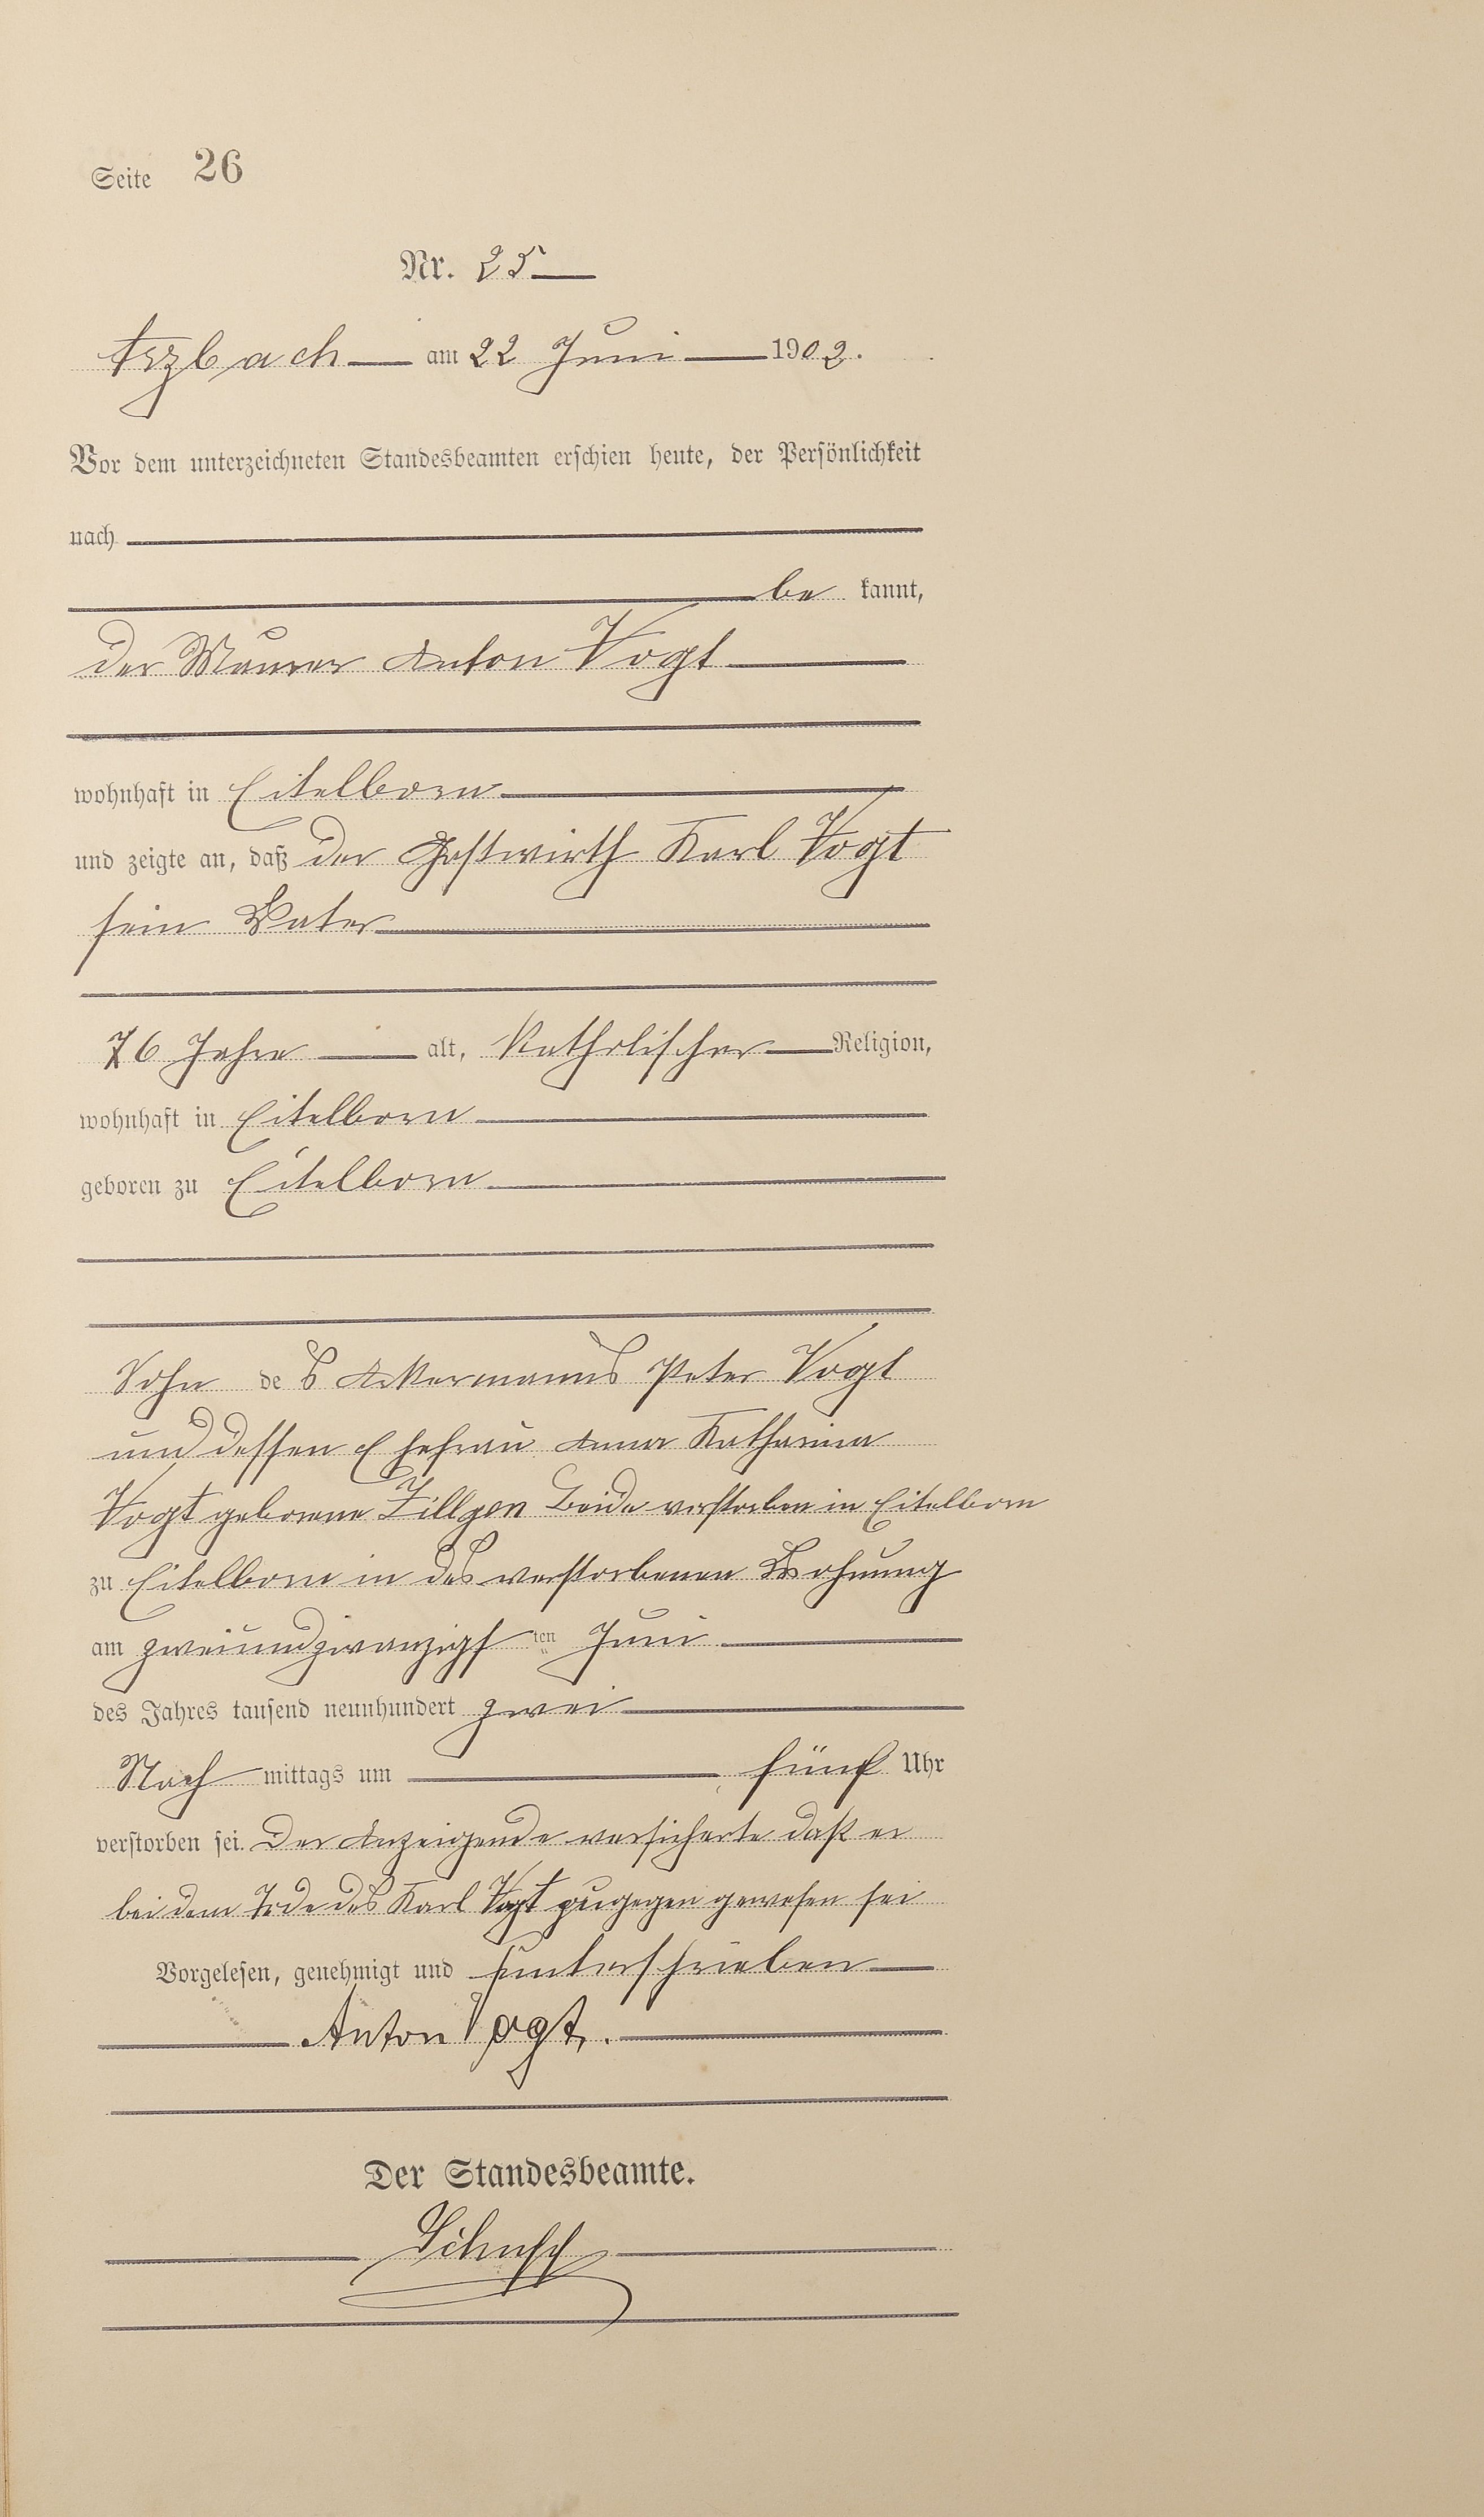 Seite 26
Nr. 25
Arzbach am 22 Juni 1902.
Vor dem unterzeichneten Standesbeamten erschien heute, der Persönlichkeit
nach
be kannt,
der Maurer Anton Vogt
wohnhaft in Eitelborn
und zeigte an, daß der Gastwirth Karl Vogt
sein Vater
76 Jahre alt, Katholischer Religion,
wohnhaft in Eitelborn
geboren zu Eitelborn
Sohn des Ackermanns Peter Vogt
und dessen Ehefrau Anna Katharina
Vogt geborene Zillgen Beide verstorben in Eitelborn
zu Eitelborn in des verstorbenen Wohnung
am zweiundzwanzigsten Juni
des Jahres tausend neunhundert zwei
Nach mittags um fünf Uhr
verstorben sei. Der Anzeigende versicherte daß er
bei dem Tode des Karl Vogt zugegen gewesen sei
Vorgelesen, genehmigt und unterschrieben
Anton Vogt.
Der Standesbeamte.